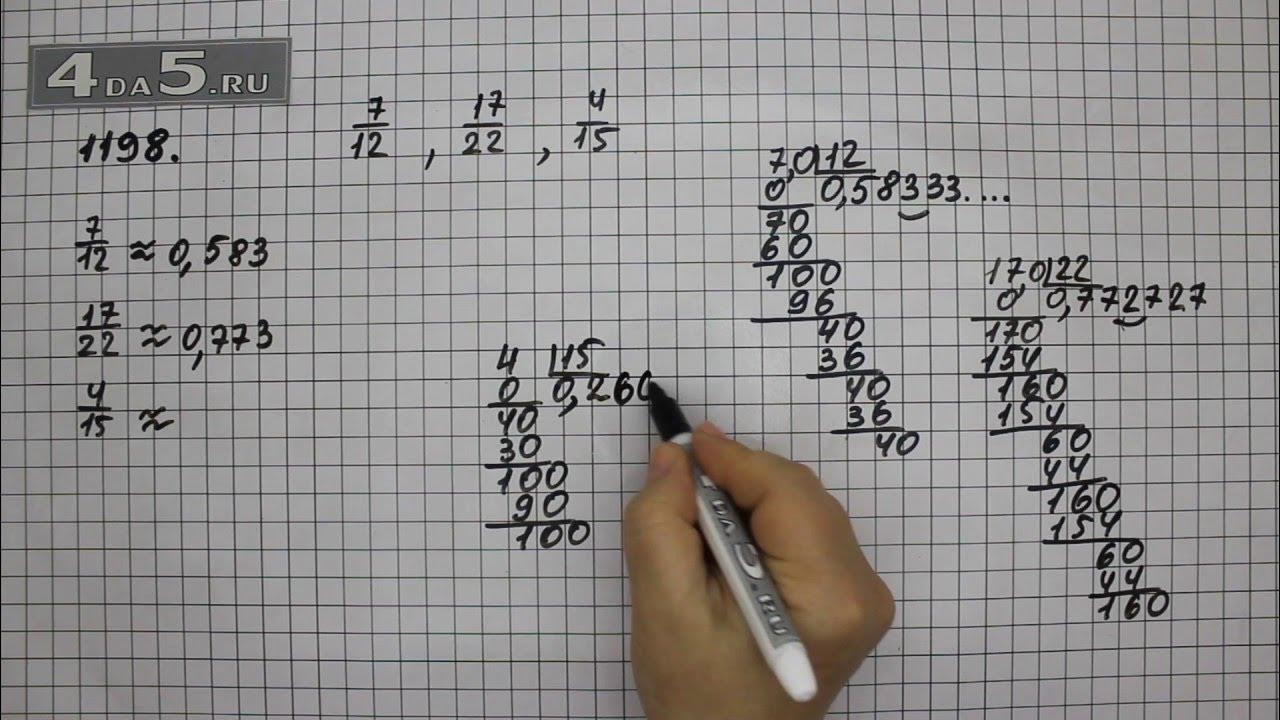 4DA5.RU
1198.
7/12 , 17/22 , 4/15
7/12 ≈ 0,583
17/22 ≈ 0,773
4/15 ≈
4 | 15
0 0,266
40
30
100
90
100
7,0 | 12
0 0,58333....
70
60
100
96
40
36
40
36
40
17,0 | 22
0 0,772727
170
154
160
154
60
44
160
154
60
44
160
DA5.RU